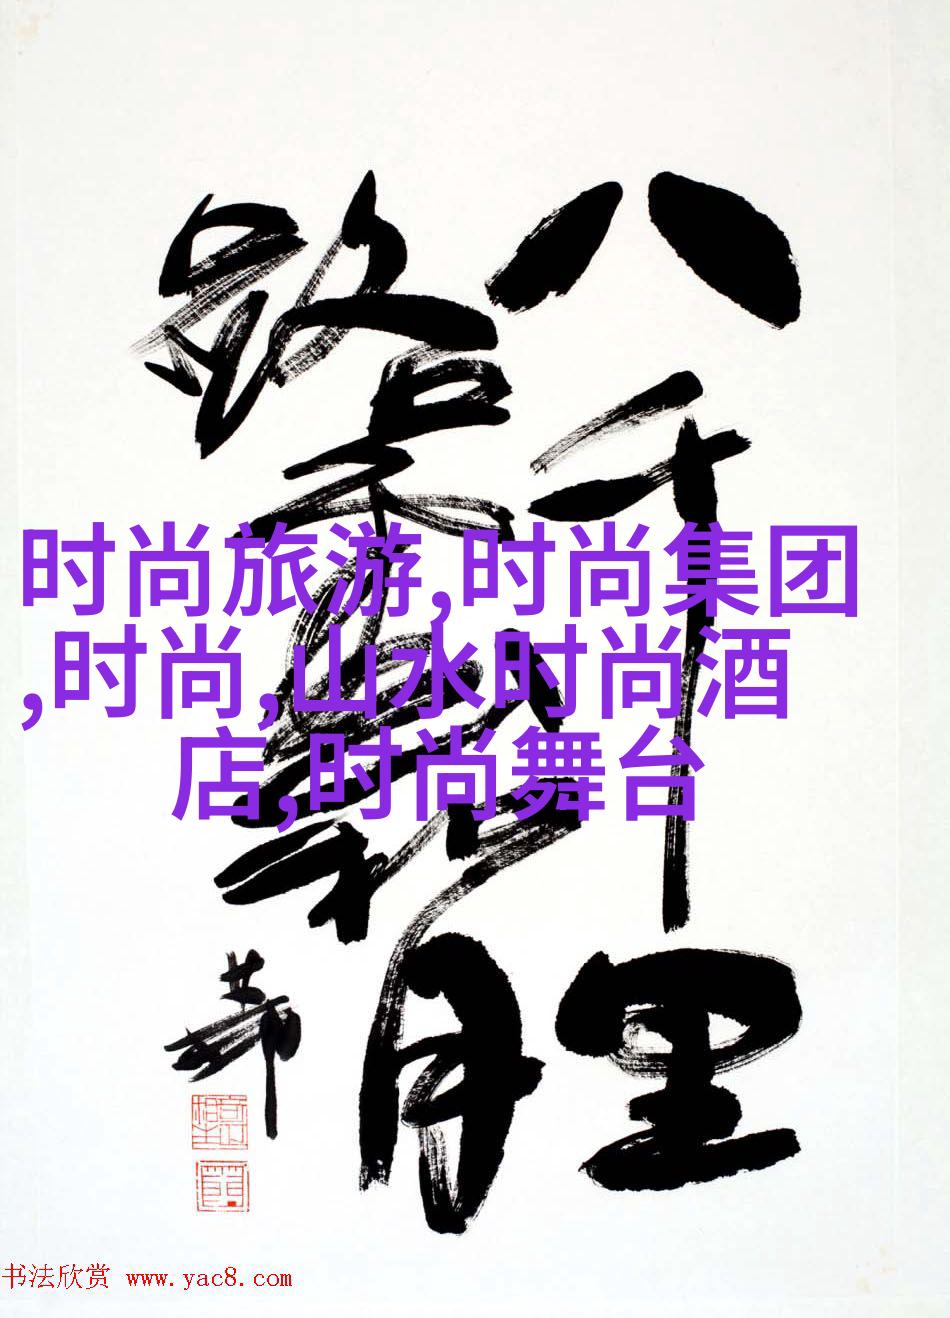 八千里
路雲和月
时尚旅游,时尚集团
,时尚,山水时尚酒
店,时尚舞台
书法欣赏 www.yac8.com